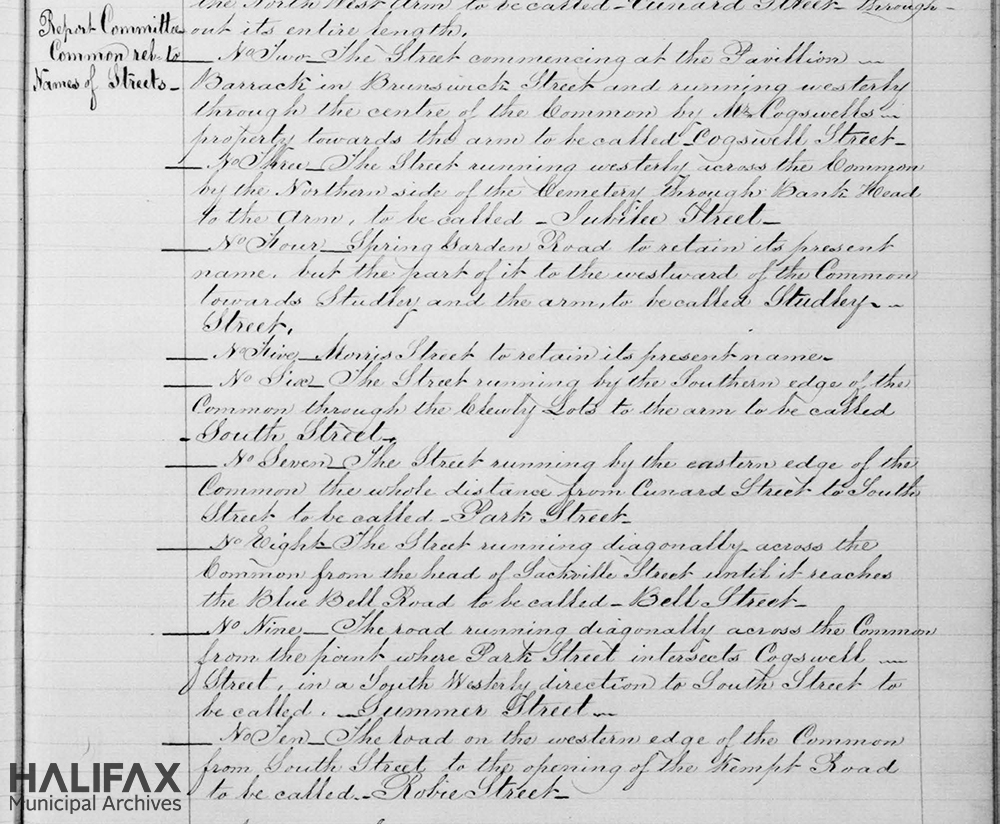 Report Committee
Common rel. to
Names of Streets -
the North West Arm to be called - Cunard Street - through-
out its entire length.
No Two - The Street commencing at the Pavillion
Barrack in Brunswick Street and running westerly
through the centre of the Common by Mr Cogswells
property towards the arm to be called Cogswell Street -
No Three - The Street running westerly across the Common
by the Northern side of the Cemetery through Bank Head
to the Arm, to be called - Jubilee Street -
No Four - Spring Garden Road to retain its present
name, but the part of it to the westward of the Common
towards Studley and the arm, to be called Studley -
Street,
No Five - Morris Street to retain its present name -
No Six - The Street running by the Southern edge of the
Common through the Clewly Lots to the arm to be called
- South Street -
No Seven - The Street running by the eastern edge of the
Common the whole distance from Cunard Street to South
Street to be called - Park Street -
No Eight - The Street running diagonally across the
Common from the head of Sackville Street until it reaches
the Blue Bell Road to be called - Bell Street -
No Nine - The road running diagonally across the Common
from the point where Park Street intersects Cogswell
Street, in a South Westerly direction to South Street to
be called. - Summer Street -
No Ten - The road on the western edge of the Common
from South Street to the opening of the Kempt Road
to be called - Robie Street -
HALIFAX
Municipal Archives